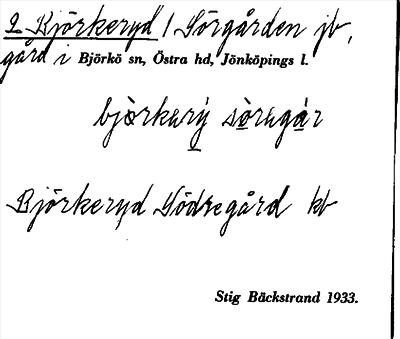 2 Björkeryd / Sörgården jb,
gård i Björkö sn, Östra hd, Jönköpings l.
Björkeryd Södregård kb
Stig Bäckstrand 1933.